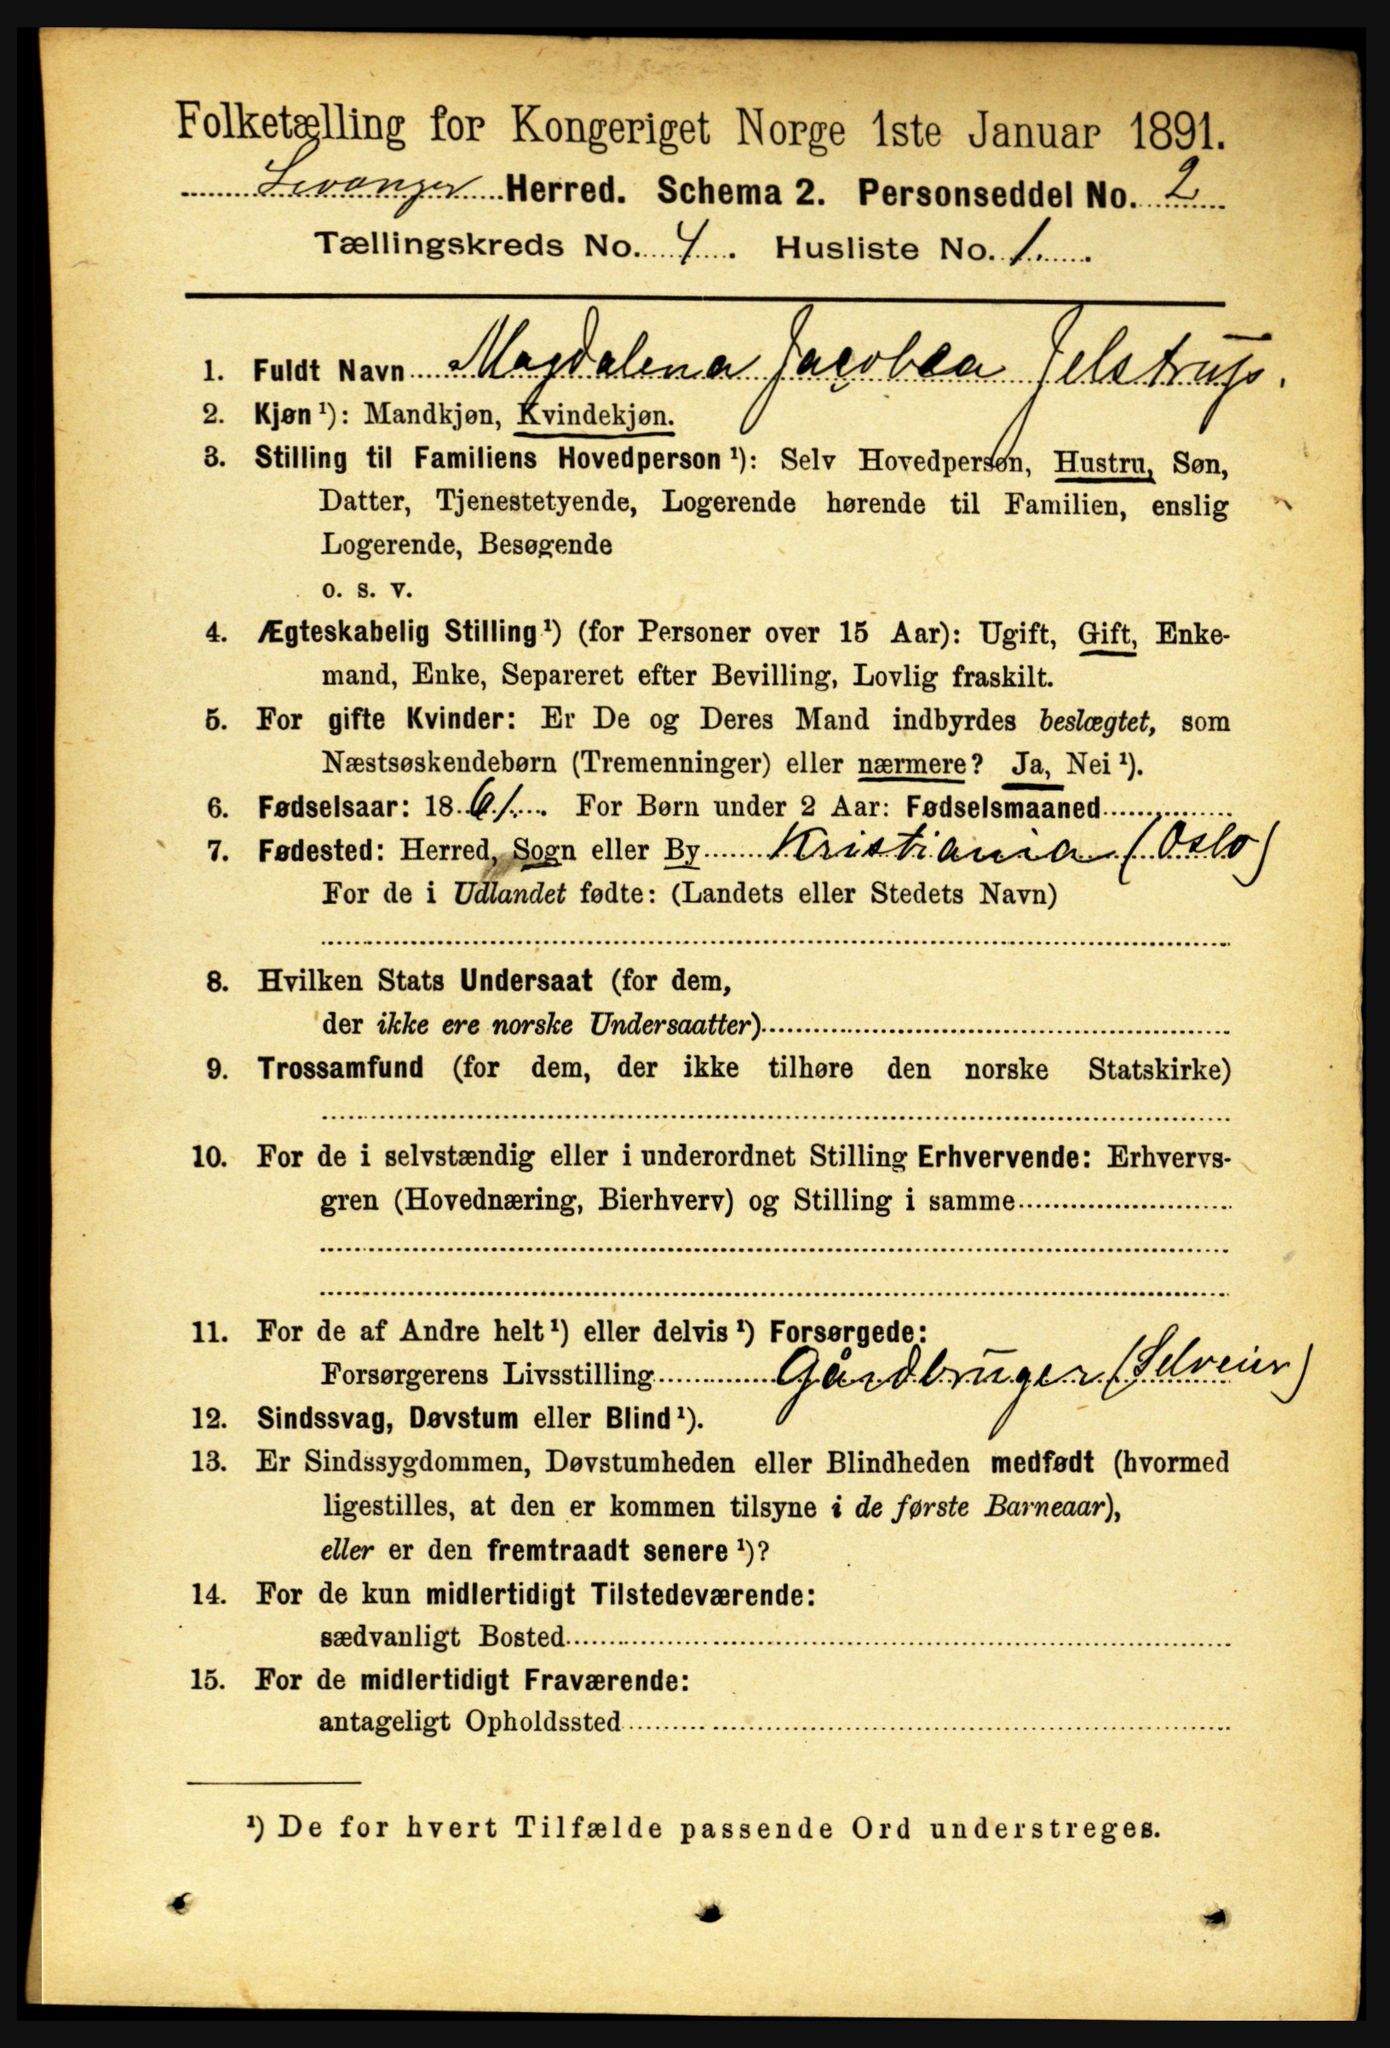 Folketælling for Kongeriget Norge 1ste Januar 1891.
Levanger Herred. Schema 2. Personseddel No. 2
Tællingskreds No. 4. Husliste No. 1.
1. Fuldt Navn Magdalena Jacobea Jelstrup.
2. Kjøn ¹): Mandkjøn, Kvindekjøn.
3. Stilling til Familiens Hovedperson ¹): Selv Hovedperson, Hustru, Søn,
Datter, Tjenestetyende, Logerende hørende til Familien, enslig
Logerende, Besøgende
o. s. v.
4. Ægteskabelig Stilling ¹) (for Personer over 15 Aar): Ugift, Gift, Enke-
mand, Enke, Separeret efter Bevilling, Lovlig fraskilt.
5. For gifte Kvinder: Er De og Deres Mand indbyrdes beslægtet, som
Næstsøskendebørn (Tremenninger) eller nærmere? Ja, Nei ¹).
6. Fødselsaar: 1861. For Børn under 2 Aar: Fødselsmaaned
7. Fødested: Herred, Sogn eller By Kristiania (Oslo)
For de i Udlandet fødte: (Landets eller Stedets Navn)
8. Hvilken Stats Undersaat (for dem,
der ikke ere norske Undersaatter)
9. Trossamfund (for dem, der ikke tilhøre den norske Statskirke)
10. For de i selvstændig eller i underordnet Stilling Erhvervende: Erhvervs-
gren (Hovednæring, Bierhverv) og Stilling i samme
11. For de af Andre helt ¹) eller delvis ¹) Forsørgede:
Forsørgerens Livsstilling Gårdbruger (Selveier)
12. Sindssvag, Døvstum eller Blind ¹).
13. Er Sindssygdommen, Døvstumheden eller Blindheden medfødt (hvormed
ligestilles, at den er kommen tilsyne i de første Barneaar),
eller er den fremtraadt senere ¹)?
14. For de kun midlertidigt Tilstedeværende:
sædvanligt Bosted
15. For de midlertidigt Fraværende:
antageligt Opholdssted
¹) De for hvert Tilfælde passende Ord understreges.